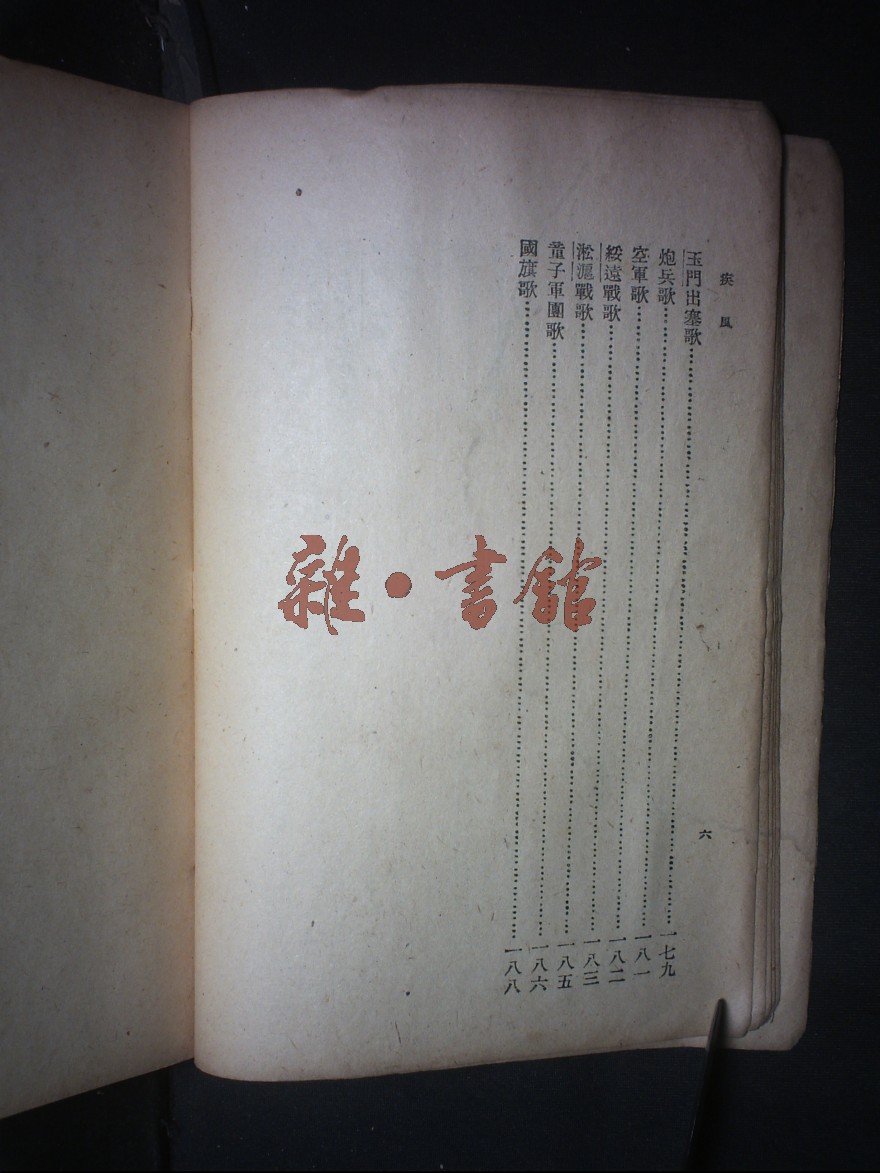 疾風
玉門出塞歌……一七九
炮兵歌……一八一
空軍歌……一八二
綏遠戰歌……一八三
淞滬戰歌……一八五
童子軍團歌……一八六
國旗歌……一八八
六
雜·書館